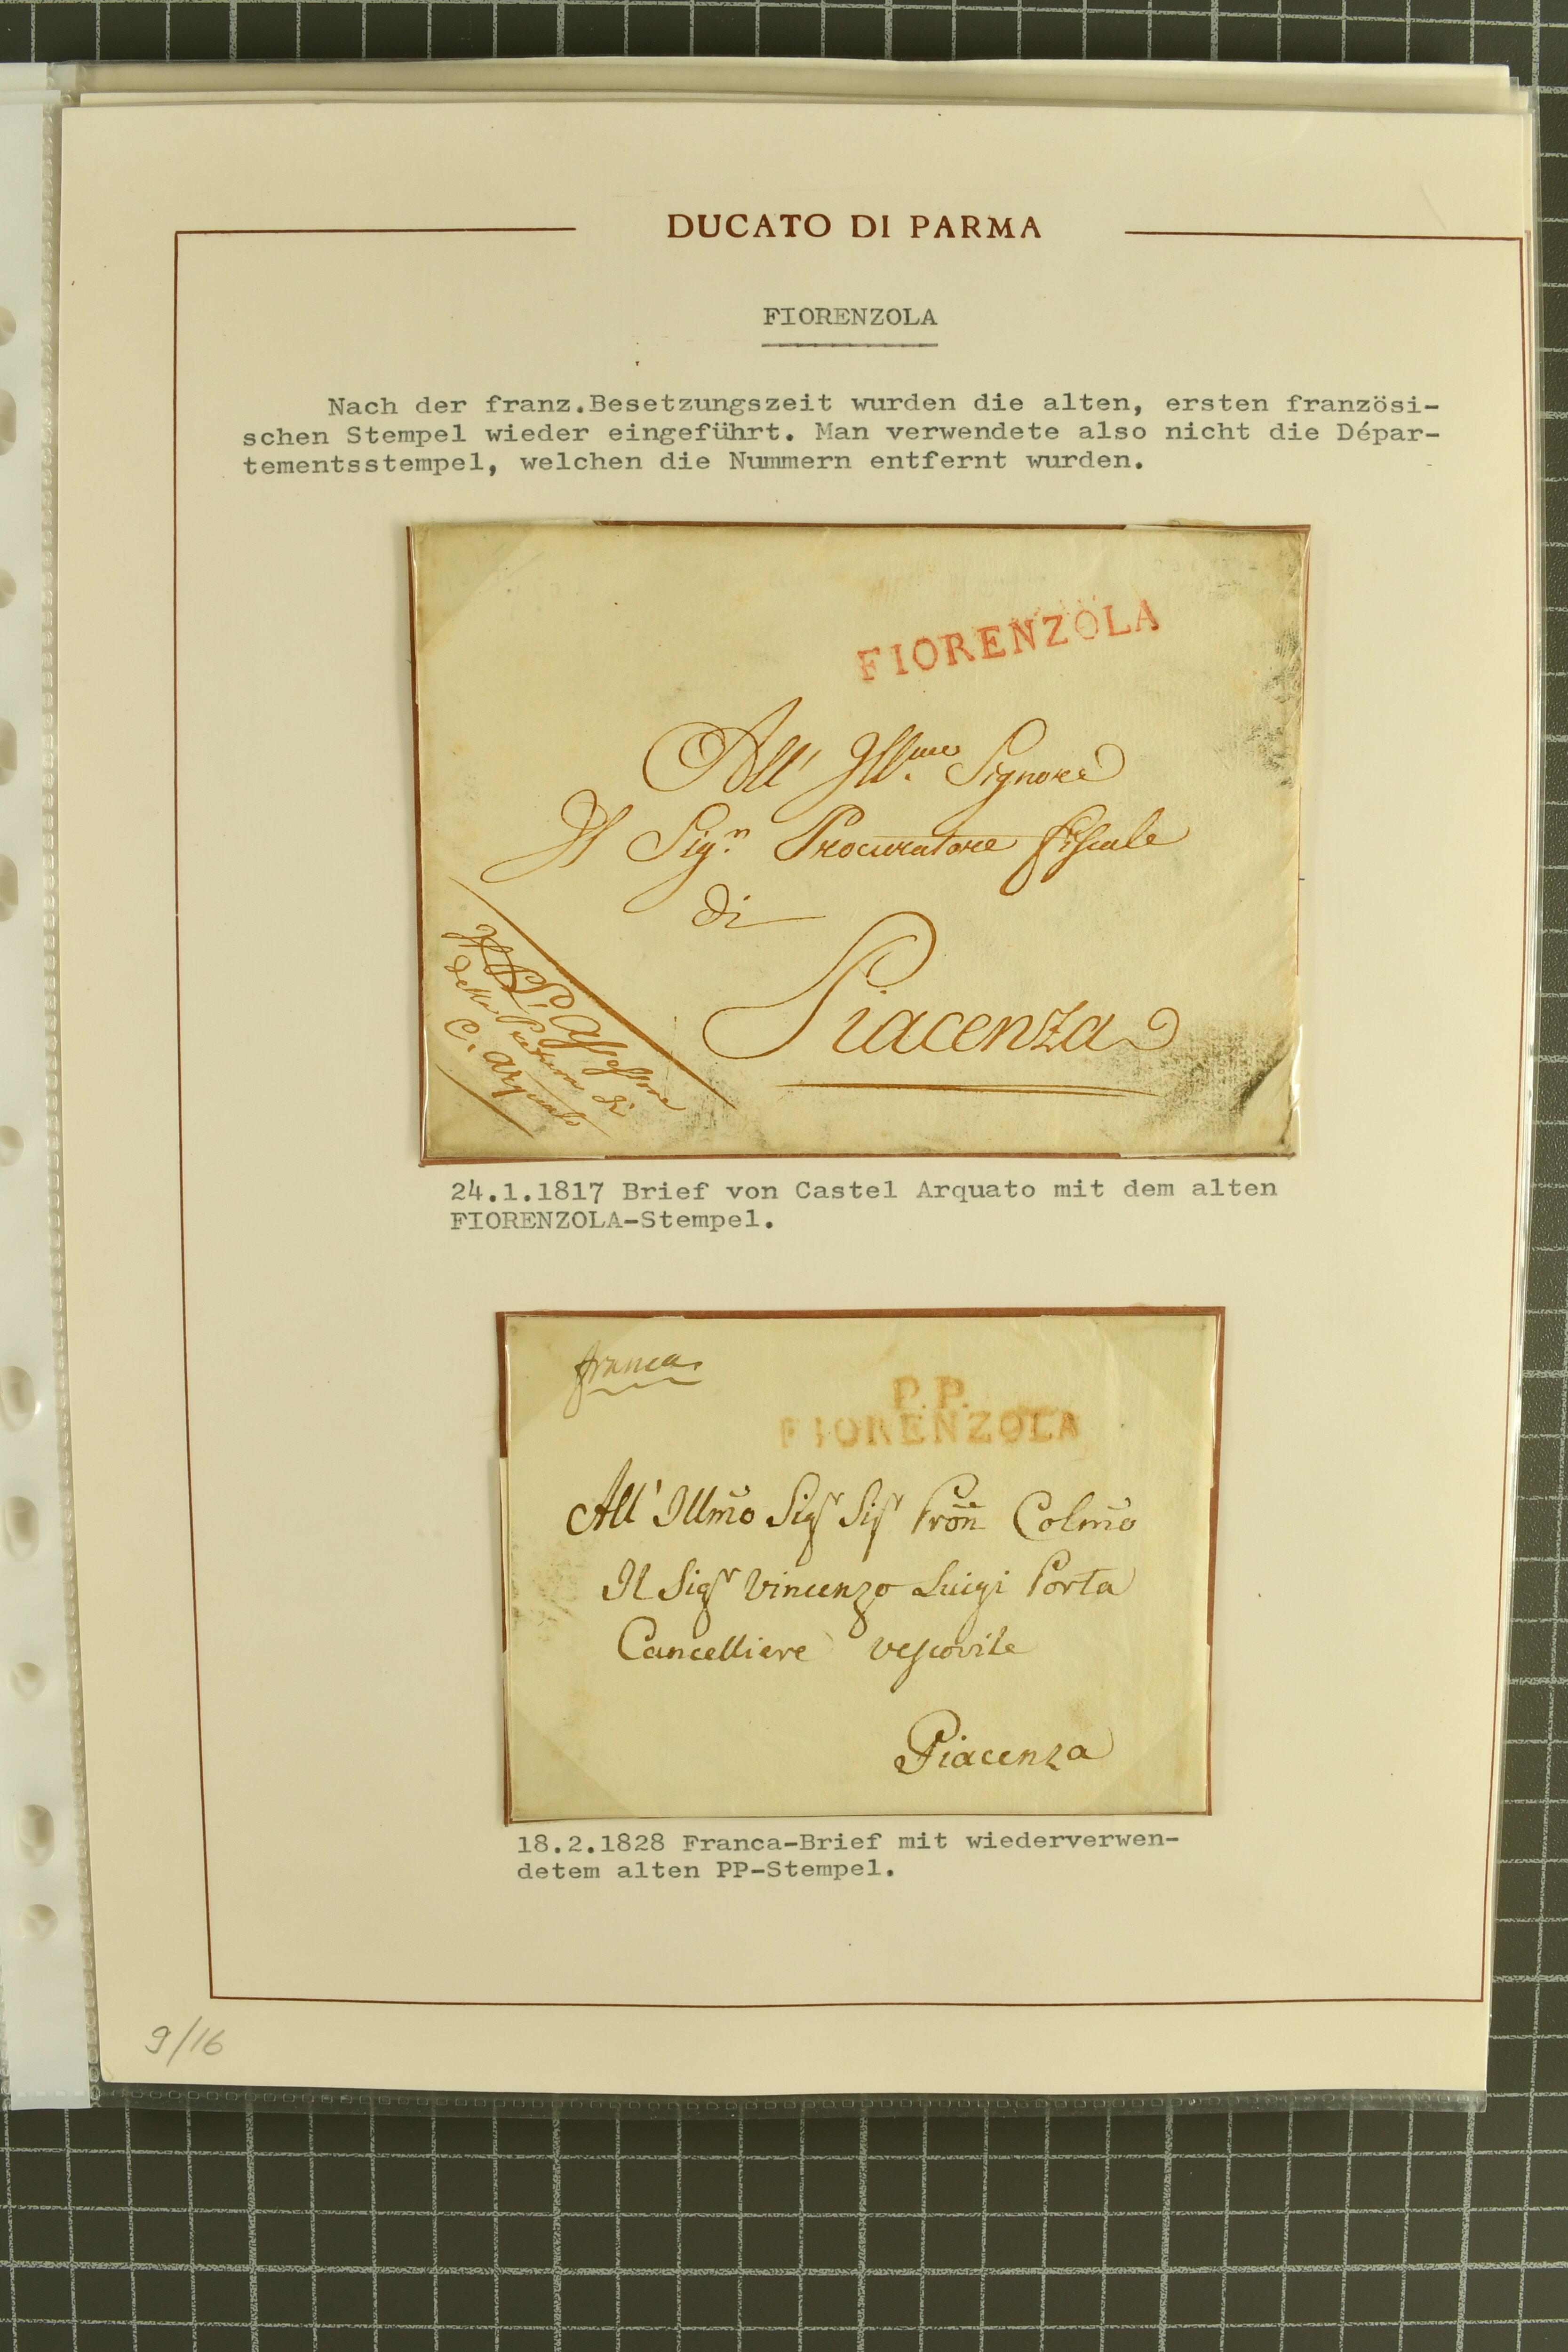 DUCATO DI PARMA
FIORENZOLA
Nach der franz.Besetzungszeit wurden die alten, ersten französi-
schen Stempel wieder eingeführt. Man verwendete also nicht die Dépar-
tementsstempel, welchen die Nummern entfernt wurden.
FIORENZOLA
All' Ill.mo Signore
Il Sig.r Procuratore fiscale
di
Piacenza
Il
della di
C. Arquato
24.1.1817 Brief von Castel Arquato mit dem alten
FIORENZOLA-Stempel.
franca
P.P.
FIORENZOLA
All' Illmo Sigr Sigr Pron Colmo
Il Sigr Vincenzo Luigi Porta
Cancelliere vescovile
Piacenza
18.2.1828 Franca-Brief mit wiederverwen-
detem alten PP-Stempel.
9/16